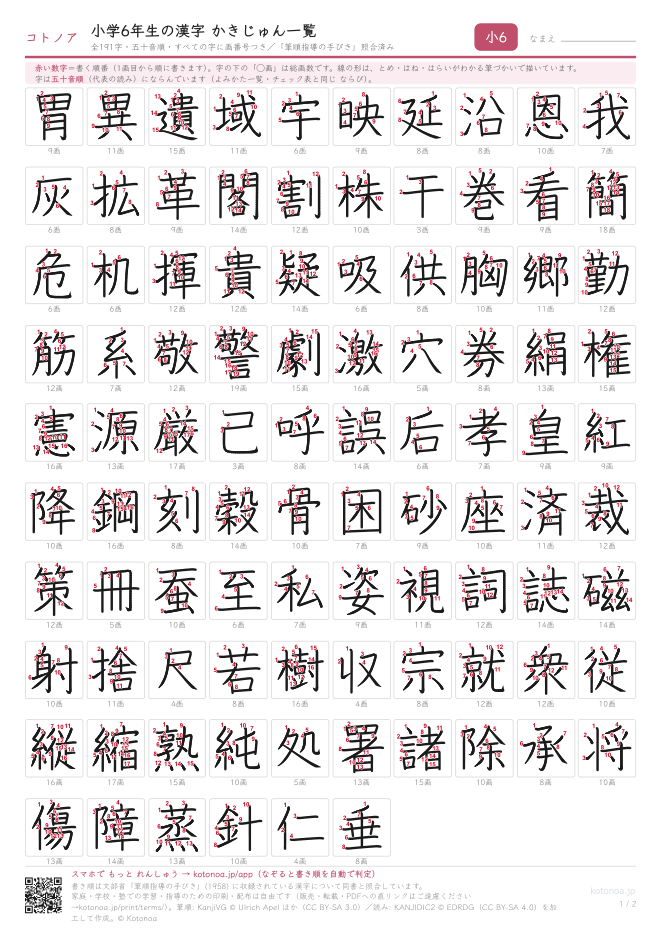 コトノア 小学6年生の漢字 かきじゅん一覧 小6 なまえ
全191字・五十音順・すべての字に画番号つき／「筆順指導の手びき」照合済み
赤い数字＝書く順番（1画目から順に書きます）。字の下の「◯画」は総画数です。線の形は、とめ・はね・はらいがわかる筆づかいで描いています。
字は五十音順（代表の読み）にならんでいます（よみかた一覧・チェック表と同じ ならび）。
胃 異 遺 域 宇 映 延 沿 恩 我
9画 11画 15画 11画 6画 9画 8画 8画 10画 7画
灰 拡 革 閣 割 株 干 巻 看 簡
6画 8画 9画 14画 12画 10画 3画 9画 9画 18画
危 机 揮 貴 疑 吸 供 胸 郷 勤
6画 6画 12画 12画 14画 6画 8画 10画 11画 12画
筋 系 敬 警 劇 激 穴 券 絹 権
12画 7画 12画 19画 15画 16画 5画 8画 13画 15画
憲 源 厳 己 呼 誤 后 孝 皇 紅
16画 13画 17画 3画 8画 14画 6画 7画 9画 9画
降 鋼 刻 穀 骨 困 砂 座 済 裁
10画 16画 8画 14画 10画 7画 9画 10画 11画 12画
策 冊 蚕 至 私 姿 視 詞 誌 磁
12画 5画 10画 6画 7画 9画 11画 12画 14画 14画
射 捨 尺 若 樹 収 宗 就 衆 従
10画 11画 4画 8画 16画 4画 8画 12画 12画 10画
縦 縮 熟 純 処 署 諸 除 承 将
16画 17画 15画 10画 5画 13画 15画 10画 8画 10画
傷 障 蒸 針 仁 垂
13画 14画 13画 10画 4画 8画
スマホで もっと れんしゅう → kotonoa.jp/app（なぞると書き順を自動で判定）
書き順は文部省「筆順指導の手びき」(1958) に収録されている漢字について同書と照合しています。
家庭・学校・塾での学習・指導のための印刷・配布は自由です（販売・転載・PDFへの直リンクはご遠慮ください
→kotonoa.jp/print/terms/）。筆順: KanjiVG © Ulrich Apel ほか（CC BY-SA 3.0）／読み: KANJIDIC2 © EDRDG（CC BY-SA 4.0）を加
工して作成。© Kotonoa
kotonoa.jp
1 / 2